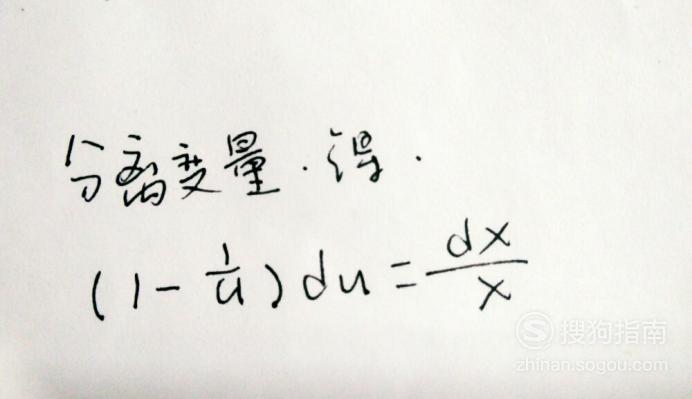 分离变量.得.
(1-1/u)du=dx/x
搜狗指南
zhinan.sogou.com